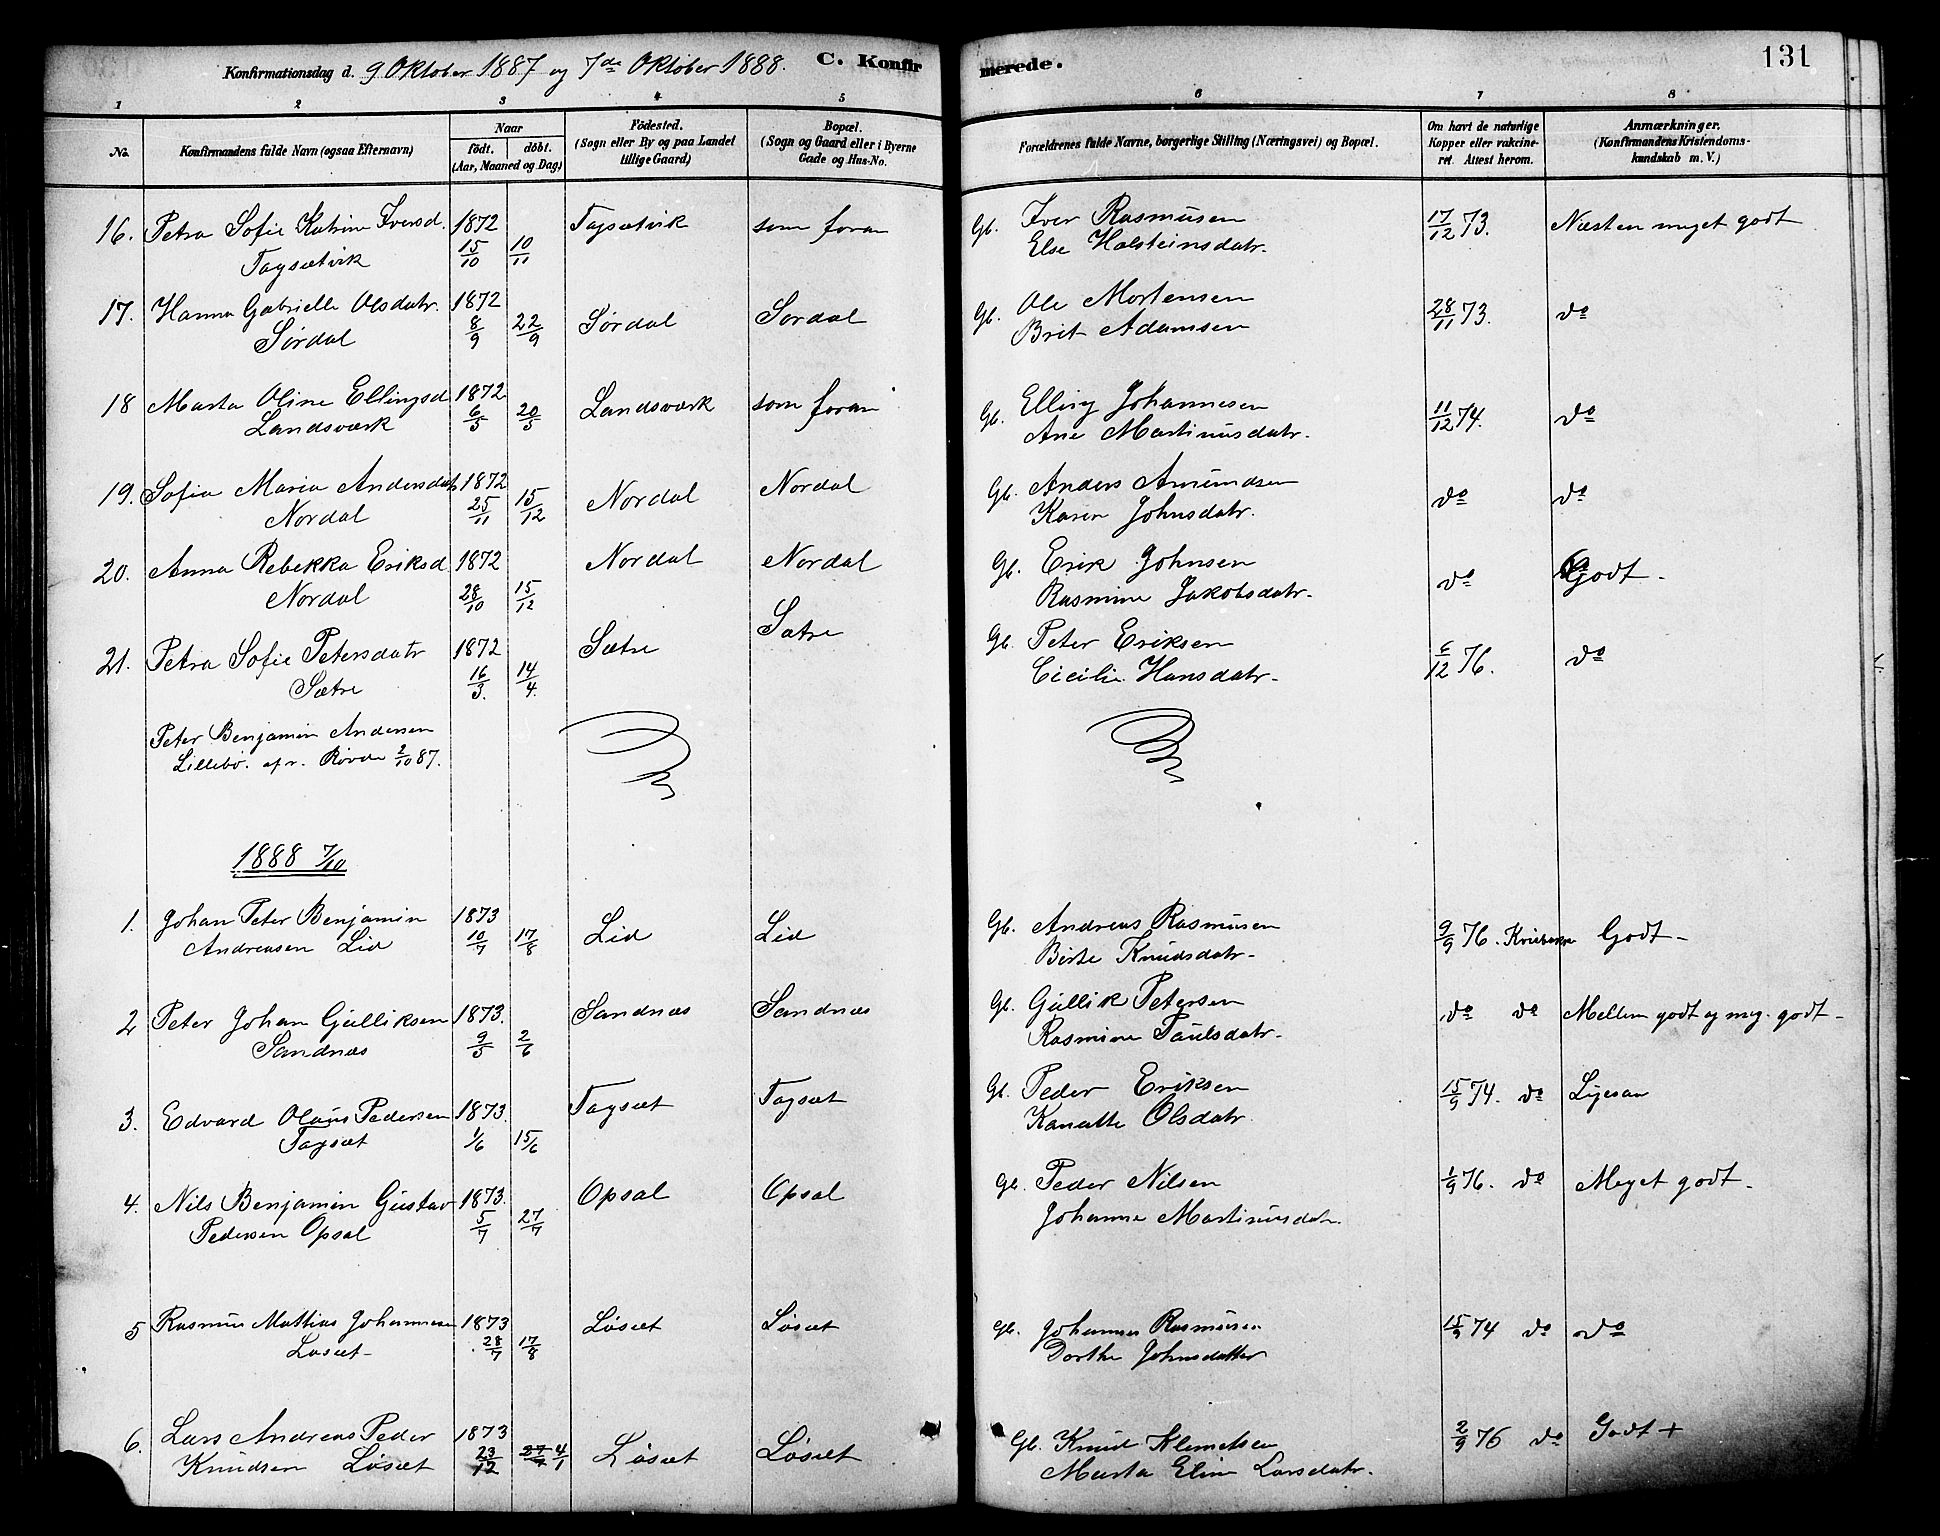 Konfirmationsdag d. 9 Oktober 1887 og 7de Oktober 1888. C. Konfirmerede. 131
1 2 3 4 5 6 7 8
No. Konfirmandens fulde Navn (ogsaa Efternavn) Naar födt. döbt. (Aar, Maaned og Dag) Födested. (Sogn eller By og paa Landet tillige Gaard) Bopæl. (Sogn og Gaard eller i Byerne Gade og Hus-No. Forældrenes fulde Navne, borgerlige Stilling (Næringsvei) og Bopæl. Om havt de naturlige Kopper eller vakcineret. Attest herom. Anmærkninger. (Konfirmandens Kristendomskundskab m. V.)
16. Petra Sofie Katrine Iversd. 1872 Tagsætvik som foran Gb. Iver Rasmusen 17/12 73. Næsten meget godt
Tagsætvik 15/10 10/11 Else Holsteinsdatr.
17. Hanna Gabrielle Olsdatr. 1872 Sørdal Sørdal Gb. Ole Mortensen 28/11 73. do
Sørdal 8/9 22/9 Brit Adamsen
18 Marta Oline Ellingsd. 1872 Landsværk som foran Gb. Elling Johannesen 11/12 74. do
Landsværk 6/5 20/5 Ane Martinusdatr.
19. Sofia Maria Andersdatr 1872 Nordal Nordal Gb. Anders Amundsen do do
Nordal 25/11 15/12 Karen Johnsdatr.
20. Anna Rebekka Eriksd. 1872 Nordal Nordal Gb. Erik Johnsen do Godt.
Nordal 28/10 15/12 Rasmine Jakobsdatr.
21. Petra Sofie Petersdatr 1872 Sætre Sætre Gb. Peter Eriksen 6/12 76. do
Sætre 16/3. 14/4. Cicilie Hansdatr.
Peter Benjamin Andersen
Lillebö. af r. Røvde 2/10 87.
1888 7/10
1. Johan Peter Benjamin 1873 Lid Lid Gb. Andreas Rasmusen 9/9 76. Godt.
Andreasen Lid 10/7 17/8 Birte Knudsdatr.
2 Peter Johan Gulliksen 1873. Sandnæs Sandnæs Gb. Gullik Petersen do do Mellem godt og meg. godt.
Sandnæs 9/5 2/6 Rasmine Paulsdatr.
3. Edvard Olaus Pedersen 1873. Tagsæt Tagsæt Gb. Peder Eriksen 15/9 74. do Ligesaa
Tagsæt 1/6 15/6 Kanutte Olsdatr.
4. Nils Benjamin Gustav 1873. Opsal Opsal Gb. Peder Nilsen 1/9 76. do Meget godt.
Pedersen Opsal 5/7 27/7 Johanne Martinusdatr.
5 Rasmus Mattias Johannesen 1873 Løsæt Løsæt Gb. Johannes Rasmusen 15/9 74 do do
Løsæt 28/7 17/8 Dorthe Johnsdatter
6. Lars Andreas Peder 1873 Løsæt Løsæt Gb. Knud Klemetsen 2/9 76 do Godt +
Knudsen Løsæt 23/12 4/1 Marta Eline Larsdatr.